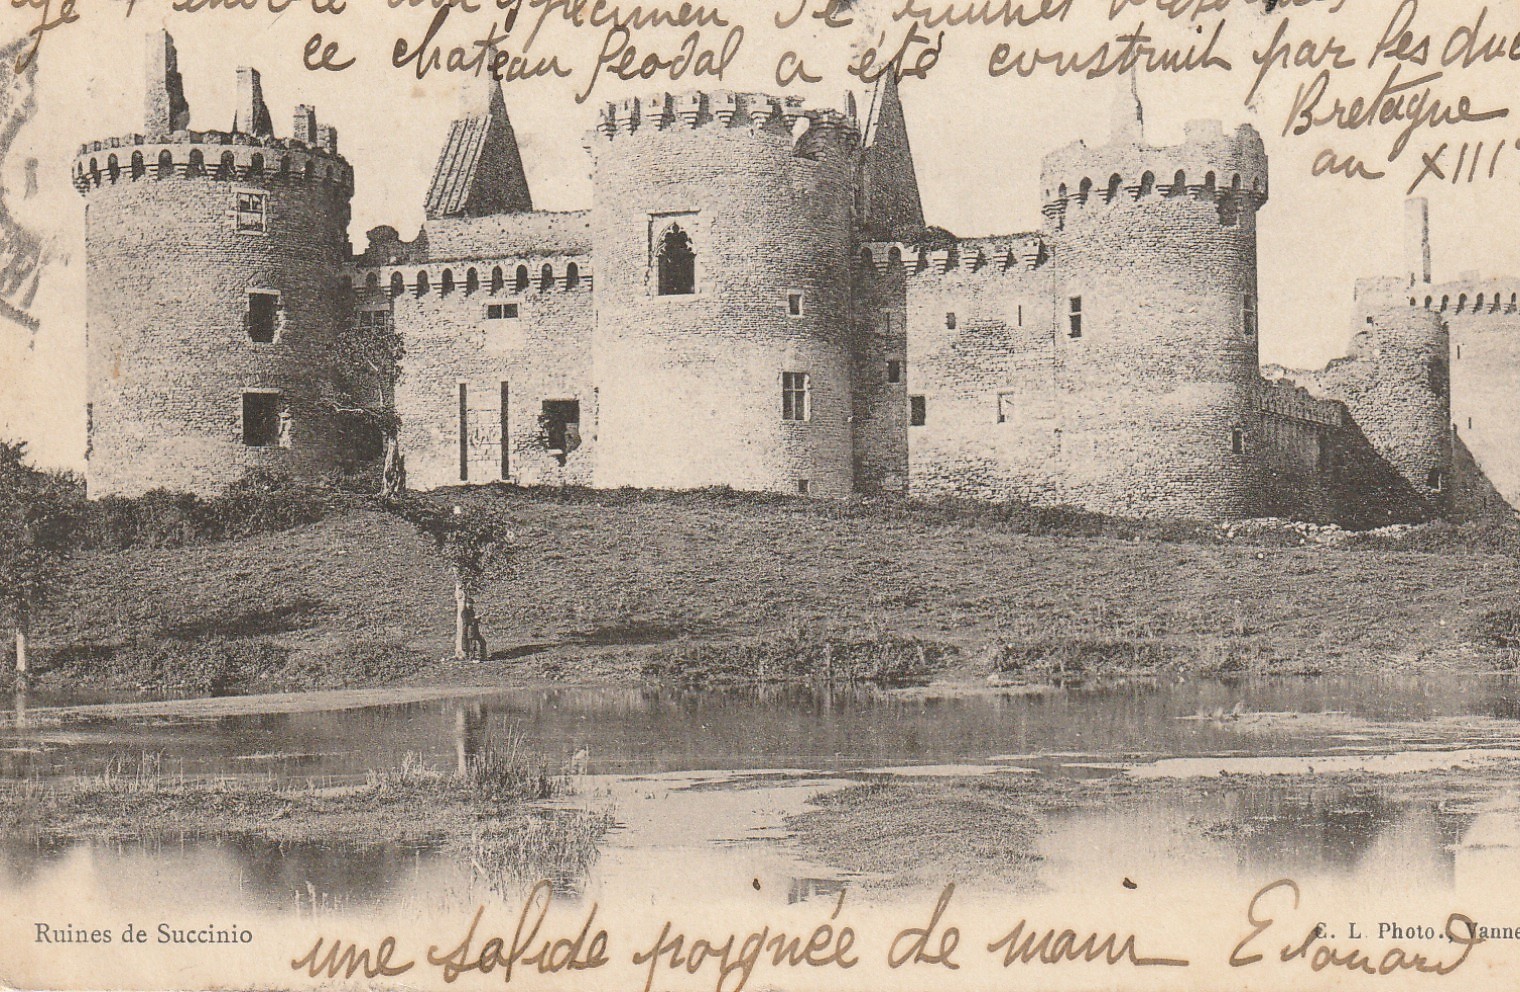 encore un specimen de ruines
ce chateau feodal a été construit par les duc
Bretagne
au XIII
Ruines de Succinio
C. L. Photo., Vanne
une solide poignée de main Edouard